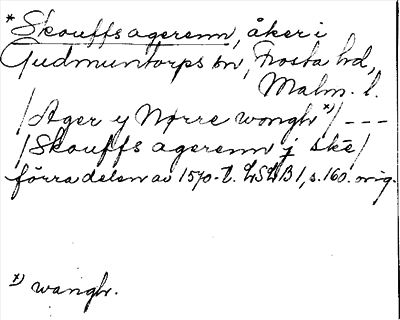 * Skouffs agerenn, åker i
Gudmuntorps sn, Frosta hd,
Malm. l.
/Ager y Nørre wongh *)/ ---
/Skouffs agerenn j ske/
förra delen av 1570-t. LSLB 1, s. 160. orig.
*) wangh.